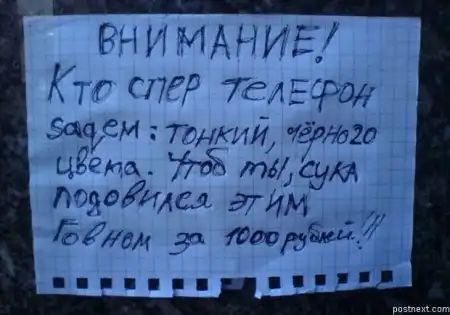 ВНИМАНИЕ!
КТО СПЕР ТЕЛЕФОН
ЗАДЕМ: ТОНКИЙ, ЧЁРНОГО
ЦВЕТА. ЧТОБ ТЫ, СУКА
ПОДОВИЛСЯ ЭТИМ
ГОВНОМ ЗА 1000 РУБЛЕЙ!!!
postnext.com